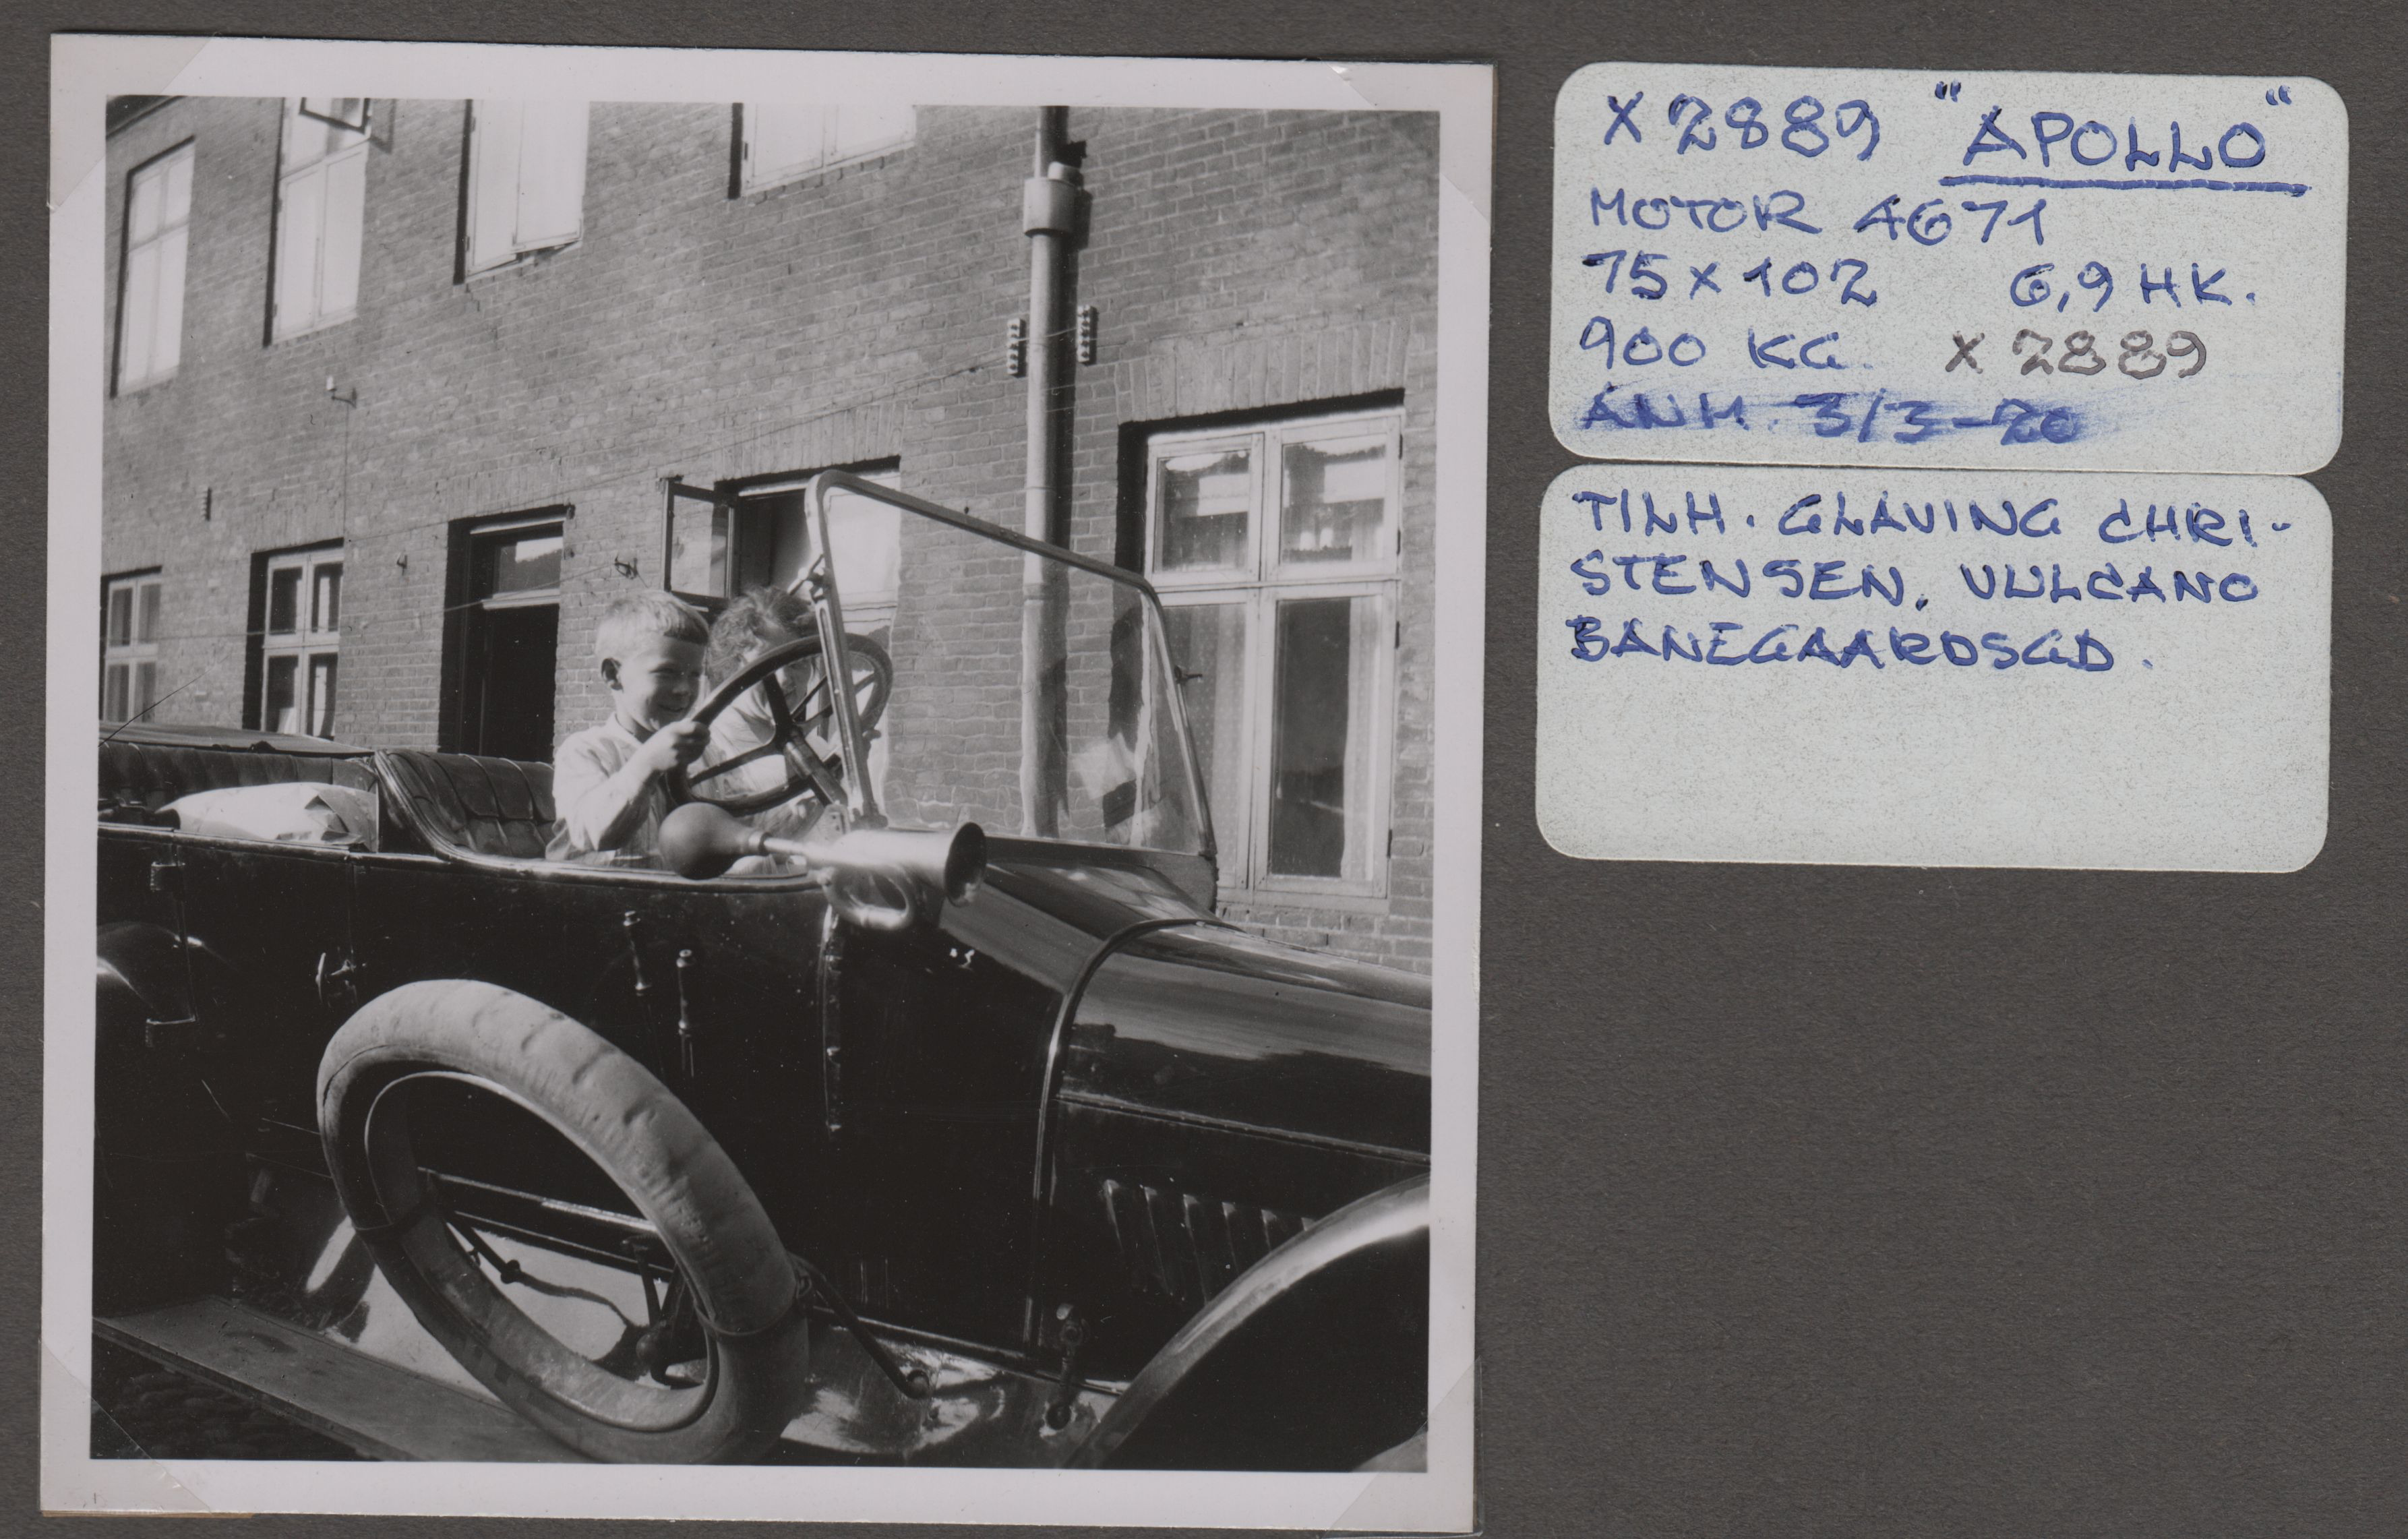 X 2889 "APOLLO"
MOTOR 4671
75 x 102 6,9 HK.
900 KG. X 2889
ANM. 3/3-20
TILH. GLAVING CHRI-
STENSEN. VULCANO
BANEGAARDSGD.